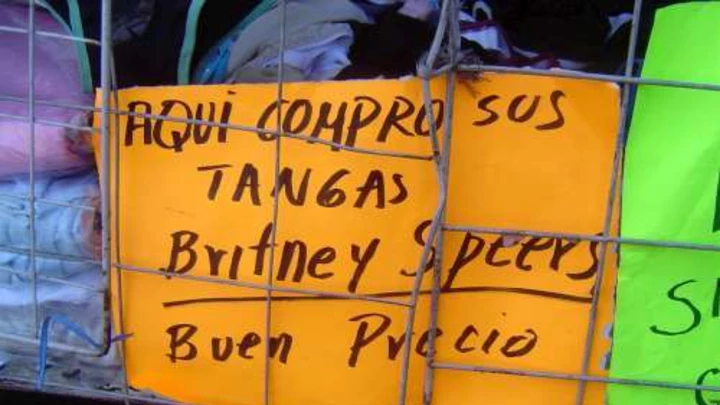 AQUI COMPRO SUS
TANGAS
Britney Speers
Buen Precio